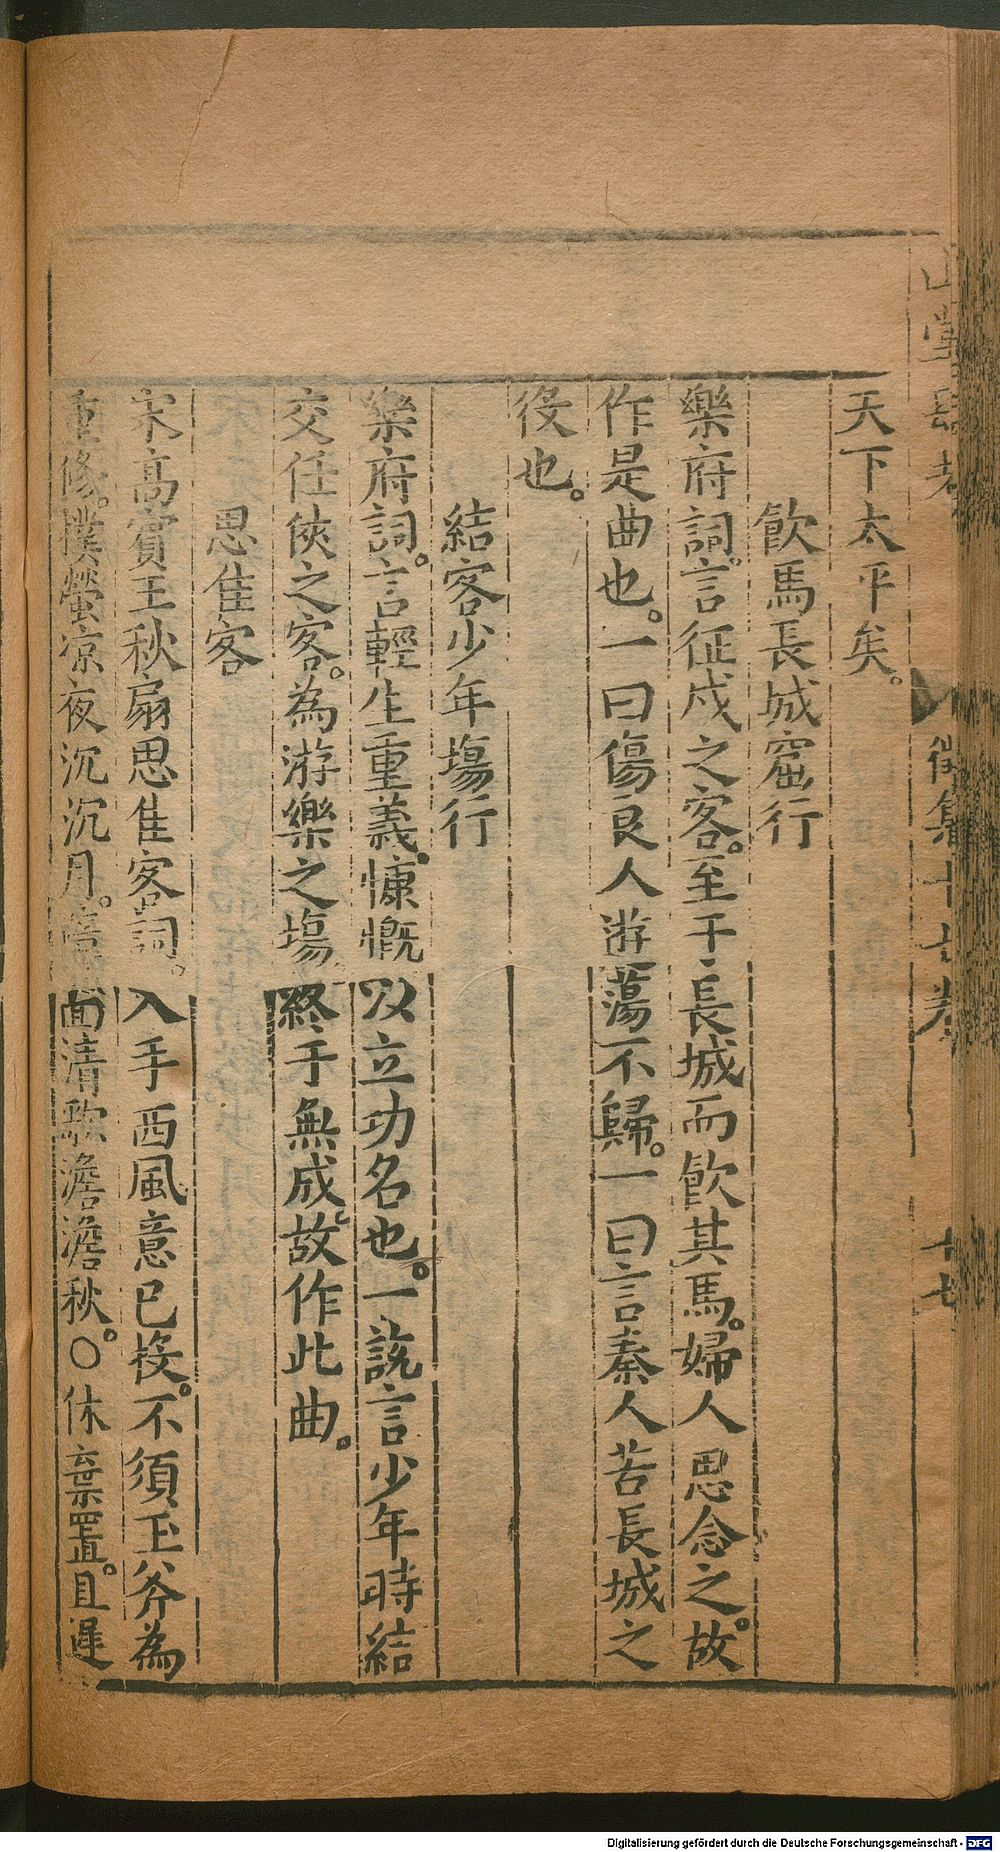 天下太平矣。
飮馬長城窟行
樂府詞。言征戍之客。至于長城而飮其馬。婦人思念之。故
作是曲也。一曰傷良人遊蕩不歸。一曰言秦人苦長城之
役也。
結客少年塲行
樂府詞。言輕生重義。慷慨以立功名也。一說言少年時結
交任俠之客。為游樂之塲。終于無成。故作此曲。
思隹客
宋高賓王秋扇思隹客詞。入手西風意已𢯱。不須玉斧為
重修。撲螢凉夜沉沉月。面清歌澹澹秋。〇休棄置。且遲
山堂肆考
徵集十七卷
十七
Digitalisierung gefördert durch die Deutsche Forschungsgemeinschaft - DFG